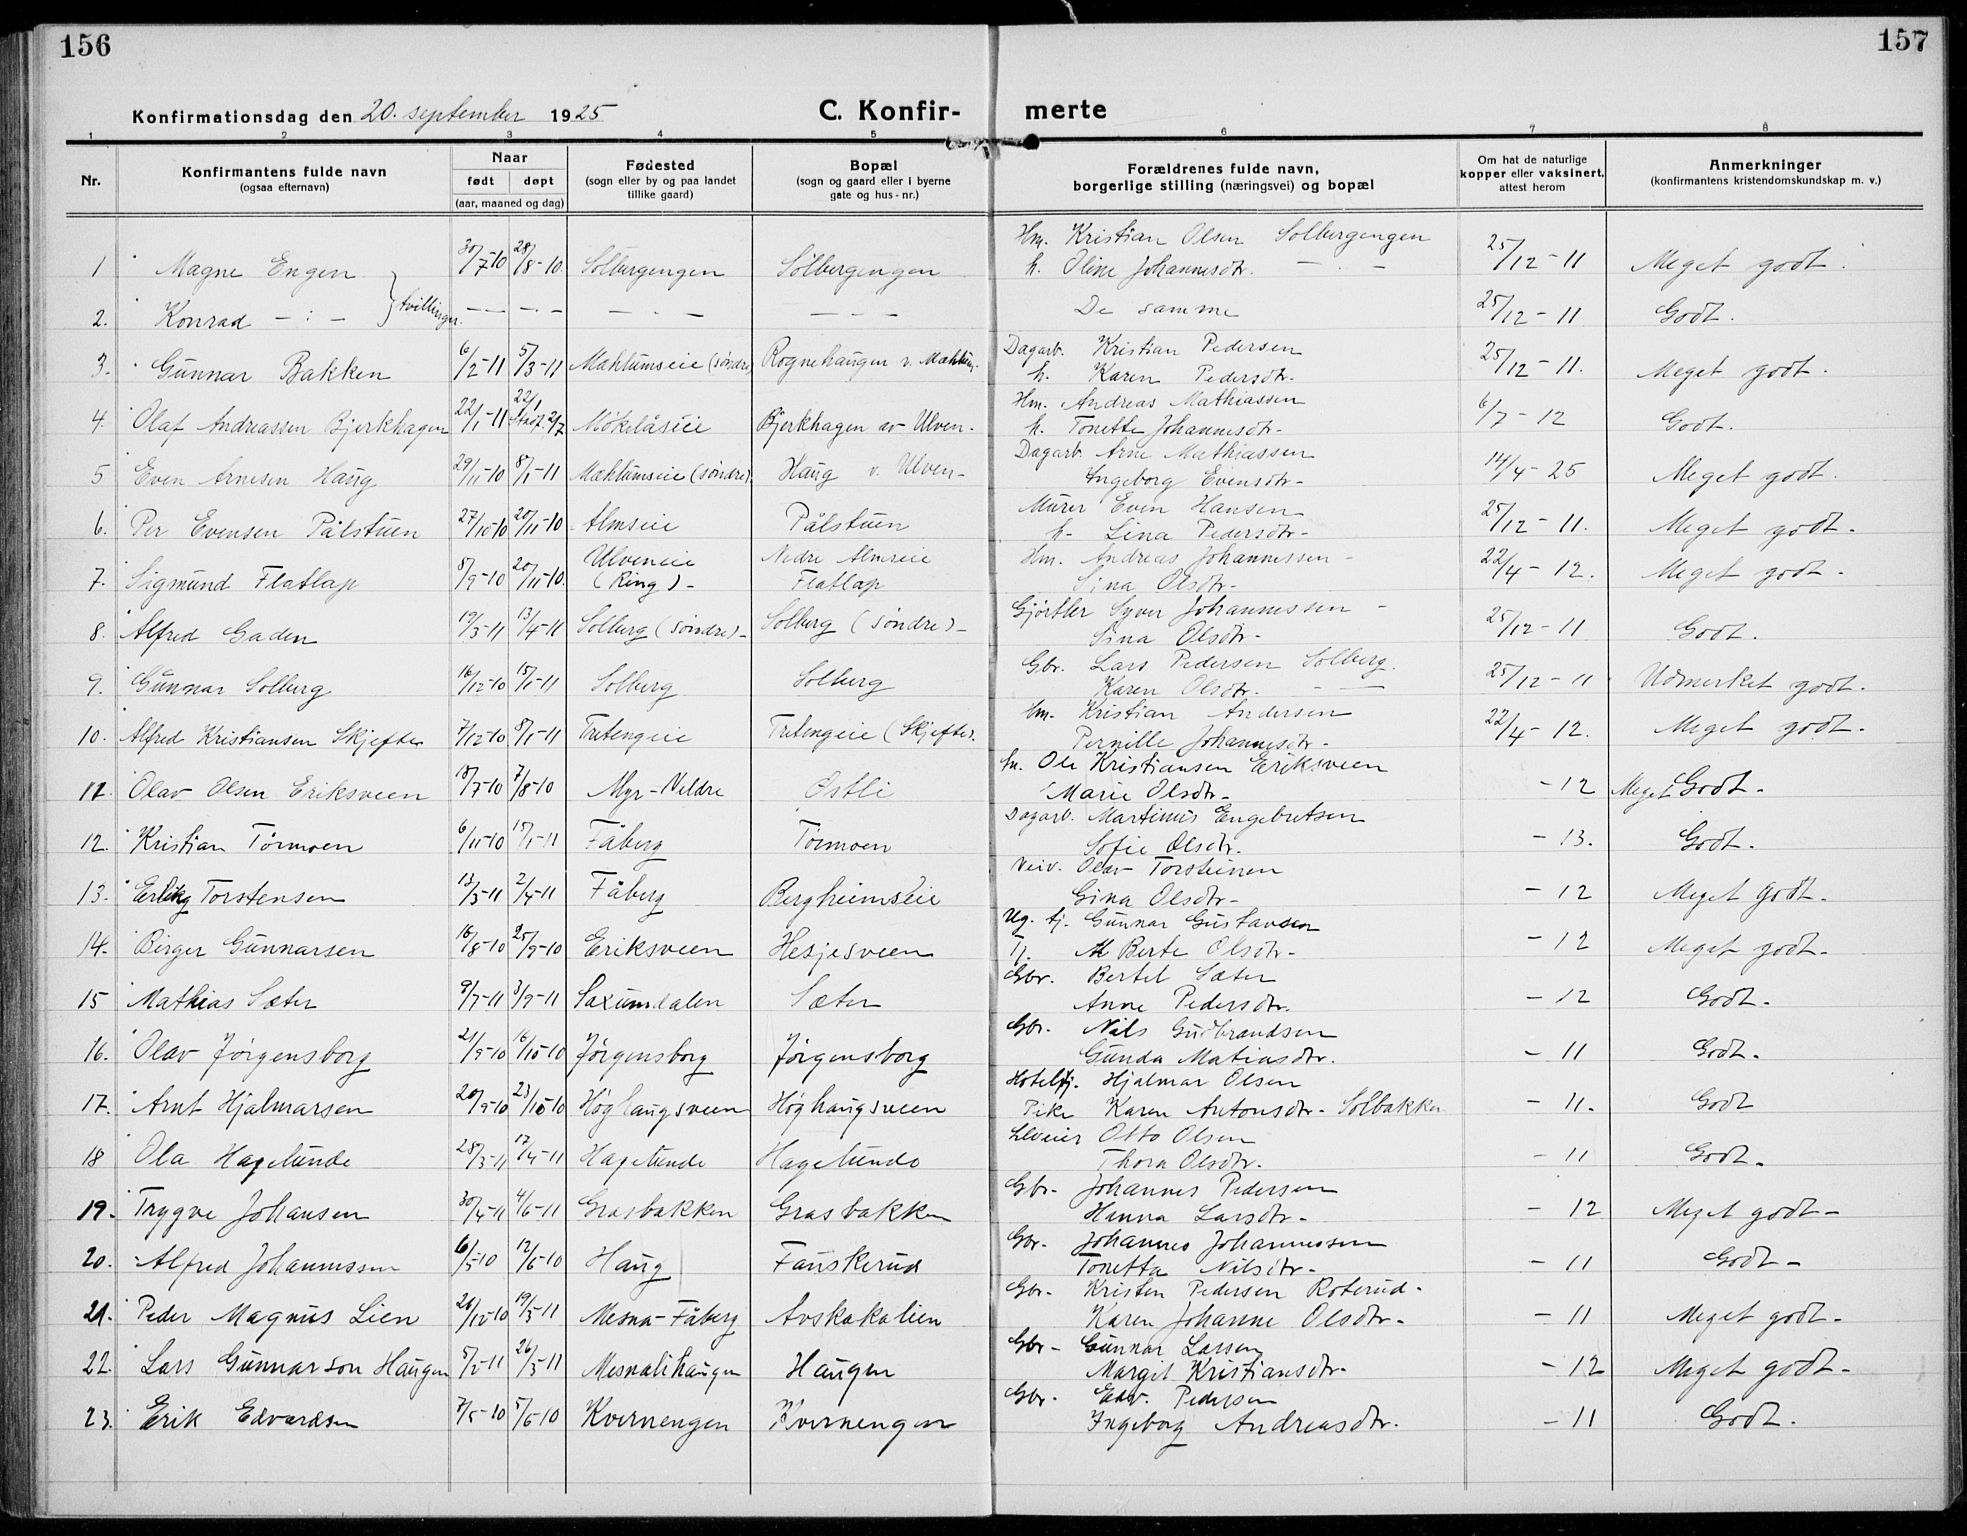 156
157
Konfirmationsdag den 20. september 1925
C. Konfir-
merte
1 2 3 4 5 6 7 8
Nr.
Konfirmantens fulde navn
(ogsaa efternavn)
Naar
født døpt
(aar, maaned og dag)
Fødested
(sogn eller by og paa landet
tillike gaard)
Bopæl
(sogn og gaard eller i byerne
gate og hus-nr.)
Forældrenes fulde navn,
borgerlige stilling (næringsvei) og bopæl
Om hat de naturlige
kopper eller vaksinert,
attest herom
Anmerkninger
(konfirmantens kristendomskundskap m. v.)
Hm. Kristian Olsen Solbergengen
1 Magne Engen 30/7-10 28/8-10. Solbergengen Solbergengen h. Oline Johannesdtr. — . — 25/12-11 Meget godt.
} tvillinger.
2. Konrad — : — — — — . — — . — — — — De samme 25/12-11 Godt.
Dagarb. Kristian Pedersen
3. Gunnar Bakken 6/2-11 5/3-11 Mæhlumseie (søndre) Rognehaugen v. Mæhlum. h. Karen Pedersdtr. 25/12-11. Meget godt.
Hm. Andreas Mathiassen
4. Olaf Andreassen Bjerkhagen 22/1-11 22/1 Stadf. 2/7 Mökelåseie Bjerkhagen av Ulven. h. Tonette Johannesdtr- 6/7-12 Godt.
Dagarb. Arne Mathiassen
5 Even Arnesen Haug 29/11-10 8/1-11 Mæhlumseie (søndre). Haug v. Ulven- Ingeborg Evensdtr- 14/4-25 Meget godt.
Murer Even Hansen
6. Per Evensen Pålstuen 27/10-10 20/11-10 Almseie Pålstuen h- Lina Pedersdtr- 25/12-11. Meget godt.
Ulveneie Nedre Almseie Hm. Andreas Johannessen -
7. Sigmund Flatlap 8/9-10 20/11-10. (Ring)- Flatlap Sina Olsdtr- 22/4-12. Meget godt-
Gjørtler Syver Johannessen -
8. Alfred Gaden 19/3-11 13/4-11 Solberg (søndre)- Solberg (søndre)- Sina Olsdtr- 25/12-11 Godt.
Gbr. Lars Pedersen Solberg.
9. Gunnar Solberg 16/12-10 15/1-11 Solberg Solberg Karen Olsdtr. — — 25/12-11 Udmerket godt.
Hm- Kristian Andersen
10. Alfred Kristiansen Skjefte 7/12-10 8/1-11 Tretengeie Tretengeie (Skjefte). Pernille Johannesdtr- 22/4-12. Meget godt.
Ole Kristiansen Eriksveen
11. Olav Olsen Eriksveen 18/7-10 7/8-10 Myr-Veldre Østli Marie Olsdtr- -12 Meget Godt-
Dagarb. Martinus Engebretsen
12. Kristian Tørmoen 6/11-10 15/1-11 Fåberg Tørmoen Sofie Olsdtr. -13. Godt.
Olav Torsteinsen
13. Erling Torstensen 13/3-11 2/4-11 Fåberg Bergheimseie Gina Olsdtr- -12 Meget godt.
Ug. tj. Gunnar Gustavsen
14. Birger Gunnarsen 16/8-10 25/9-10 Eriksveen Hesjesveen Tj. M Berte Olsdtr- -12 Meget godt-
Gbr. Bertel Sæter
15 Mathias Sæter 9/7-11 3/9-11 Saxumdalen Sæter Anne Pedersdtr. -12 Godt-
Gbr- Nils Gudbrandsen
16. Olav Jørgensborg 21/9-10 16/10-10 Jørgensborg Jørgensborg Gunda Matiasdtr. -11 Godt-
Hoteltj. Hjalmar Olsen
17. Arnt Hjalmarsen 20/9-10 23/10-10 Høghaugsveen Høghaugsveen Pike Karen Antonsdtr- Solbakken -11. Godt
Otto Olsen
18 Ola Hagelunde 28/3-11 17/4-11 Hagelunde Hagelunde Thora Olsdtr. -11 Godt-
Gbr- Johannes Pedersen
19. Trygve Johansen 30/4-11 4/6-11 Grasbakken Grasbakken Hanna Larsdtr- -12 Meget godt-
Gbr- Johannes Johannessen
20. Alfred Johannessen 16/5-10 12/6-10 Haug Fauskerud Tonetta Nilsdtr- -11 Godt-
Gbr- Kristen Pedersen Roterud-
21. Peder Magnus Lien 26/12-10 19/3-11 Mesna-Fåberg Avskakalien Karen Johanne Olsdtr- -11 Meget godt-
Gbr- Gunnar Larsen
22. Lars Gunnarson Haugen 5/2-11 26/3-11 Mesnalihaugen Haugen Margit Kristiansdtr- -12 Meget godt-
Gbr- Edv. Pedersen
23. Erik Edvardsen 7/5-10 5/6-10 Kvernengen Kvernengen Ingeborg Andreasdtr. -11 Godt.